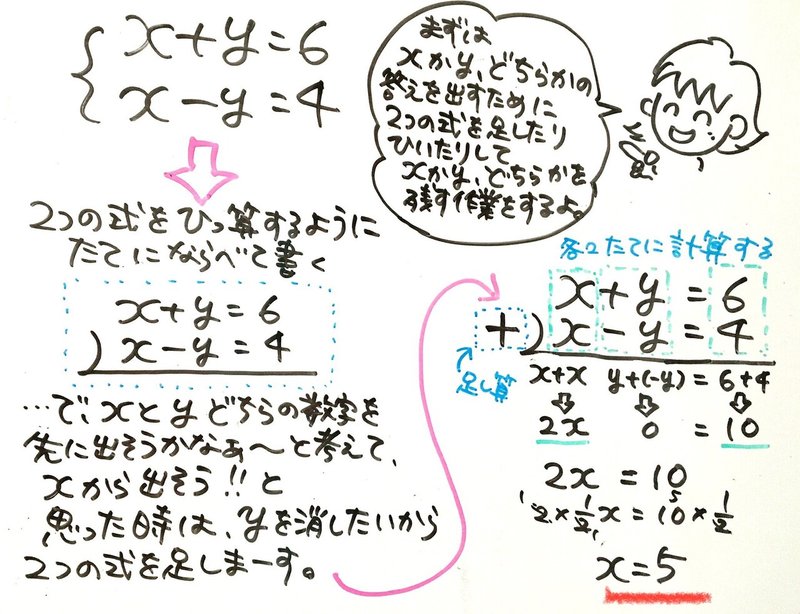 x+y=6
x−y=4
まずは
xかy、どちらかの
答えを出すために
2つの式を足したり
ひいたりして
xかy、どちらかを
残す作業をするよ。
2つの式をひっ算するように
たてにならべて書く
x+y=6
)x−y=4
…で、xとyどちらの数字を
先に出そうかなぁ〜と考えて、
xから出そう!!と
思った時は、yを消したいから
2つの式を足しまーす。
各々たてに計算する
x+y=6
+)x−y=4
足し算
x+x y+(-y)=6+4
2x 0 =10
2x=10
1 5
2×1/2x=10×1/2
1
x=5